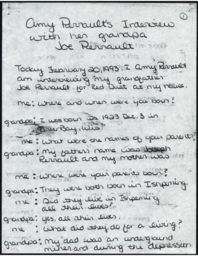 Amy Perrault's Interview
with her grandpa
Joe Perrault
Today February 20, 1993. I Amy Perrault
am interviewing my grandfather
Joe Perrault for at my house.
me: Where and when were you born?
grandpa: I was born in 1923 Dec. 3 in
Bay,
me: What were the names of your parents?
grandpa: My fathers name was Joseph
Perrault and my mother was
me: where were your parents born?
grandpa: They were both born in Ishpeming.
me: Did they live in Ishpeming
all their lives?
grandpa: yes, all their lives.
me: What did they do for a living?
grandpa: My dad was an underground
miner and during the depression